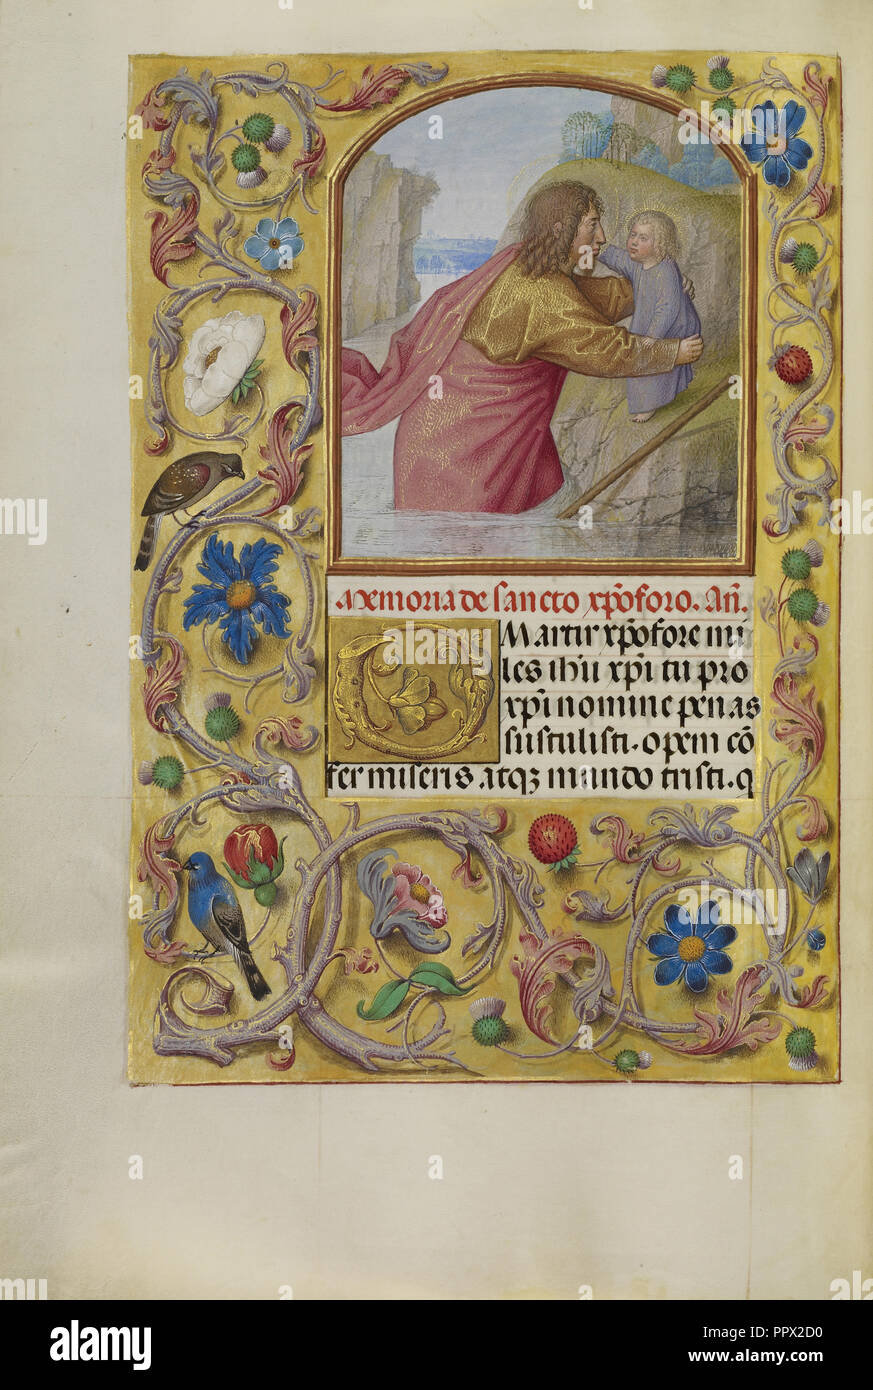 Memoria de sancto xp̄oforo. Añ.
O Martir xp̄ofore mi
les ih̄u xp̄i tu pro
xp̄i nomine penas
sustulisti. opem cō
fer miseris atqꝫ mundo tristi. q
alamy stock photo
PPX2D0
www.alamy.com